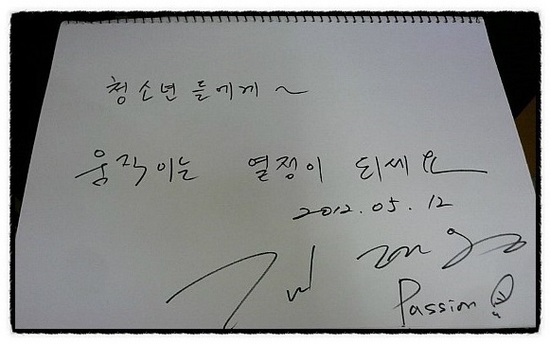 청소년들에게 ~
움직이는 열정이 되세요
2012.05.12
Passion